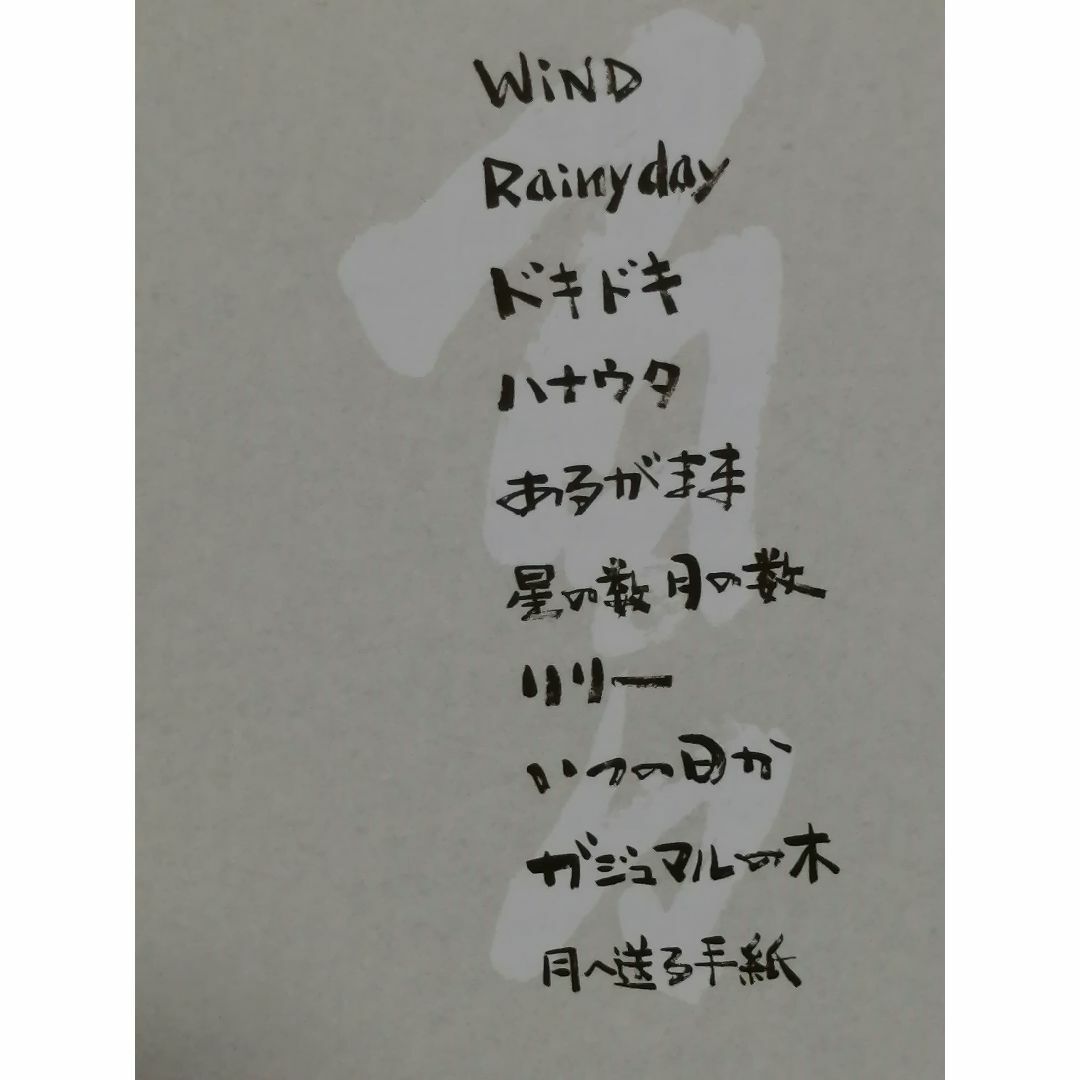 WiND
Rainyday
ドキドキ
ハナウタ
あるがまま
星の数月の数
リリー
いつの日か
ガジュマルの木
月へ送る手紙